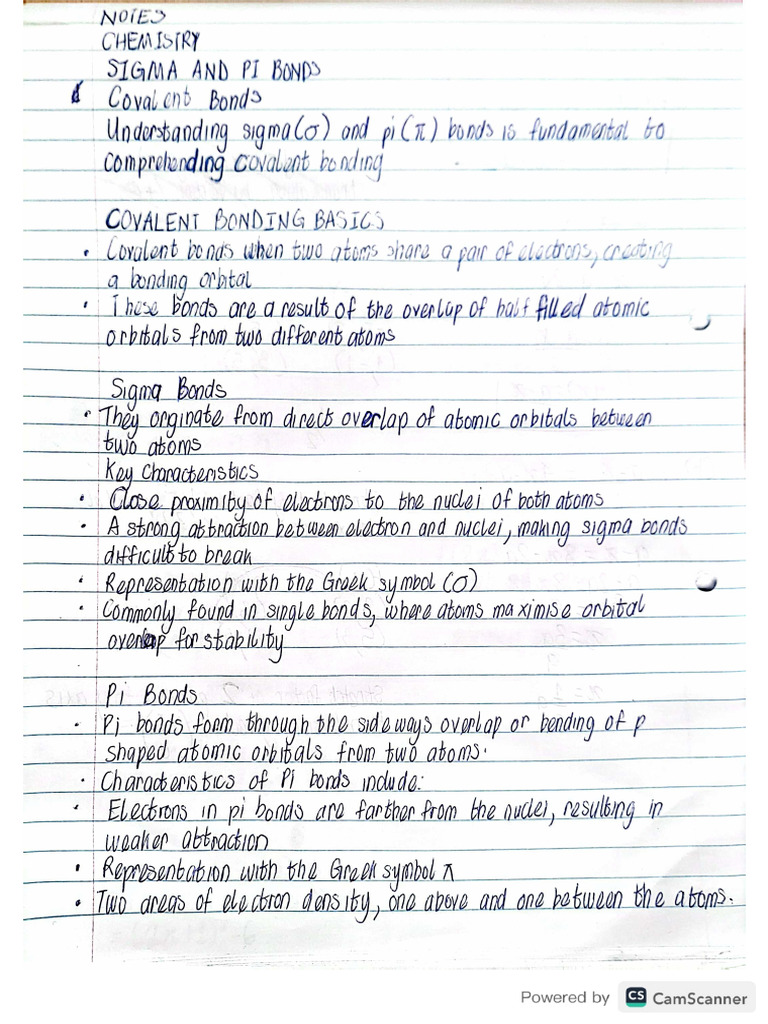 NOTES
CHEMISTRY
SIGMA AND PI BONDS
Covalent Bonds
Understanding sigma(σ) and pi(π) bonds is fundamental to
comprehending covalent bonding
COVALENT BONDING BASICS
• Covalent bonds when two atoms share a pair of electrons, creating
a bonding orbital
• These bonds are a result of the overlap of half filled atomic
orbitals from two different atoms
Sigma Bonds
• They orginate from direct overlap of atomic orbitals between
two atoms
Key Characteristics
• Close proximity of electrons to the nuclei of both atoms
• A strong attraction between electron and nuclei, making sigma bonds
difficult to break
• Representation with the Greek symbol (σ)
• Commonly found in single bonds, where atoms maximise orbital
overlap for stability
Pi Bonds
• Pi bonds form through the sideways overlap or bending of p
shaped atomic orbitals from two atoms.
• Characteristics of Pi bonds include:
• Electrons in pi bonds are farther from the nuclei, resulting in
weaker attraction
• Representation with the Greek symbol π
• Two areas of electron density, one above and one between the atoms.
Powered by CS CamScanner